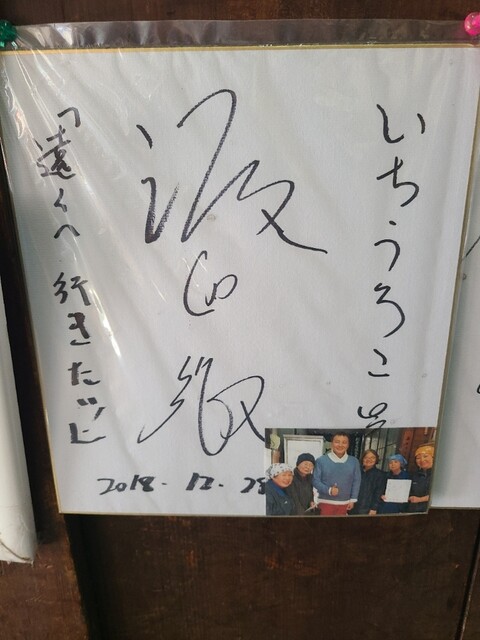 いちうろこ
「遠くへ 行きたい」
2018.12.28